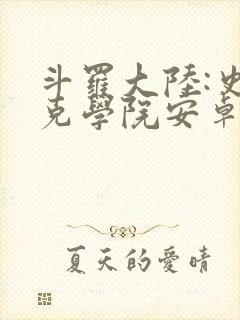 斗羅大陸:史
克學院安卓
夏天的愛晴